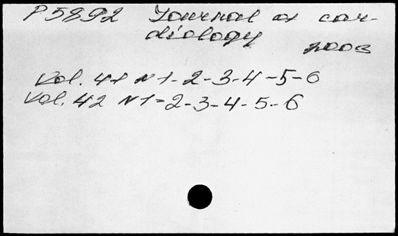 P5892 Journal of car-
diology
2003
Vol. 41 N 1-2-3-4-5-6
Vol. 42 N 1-2-3-4-5-6